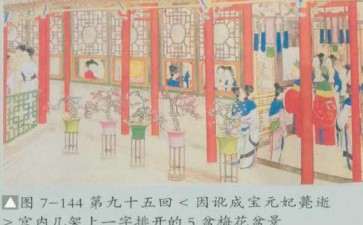 ▲图 7-144 第九十五回 < 因讹成宝元妃薨逝
> 宫内几架上一字排开的 5 盆梅花盆景